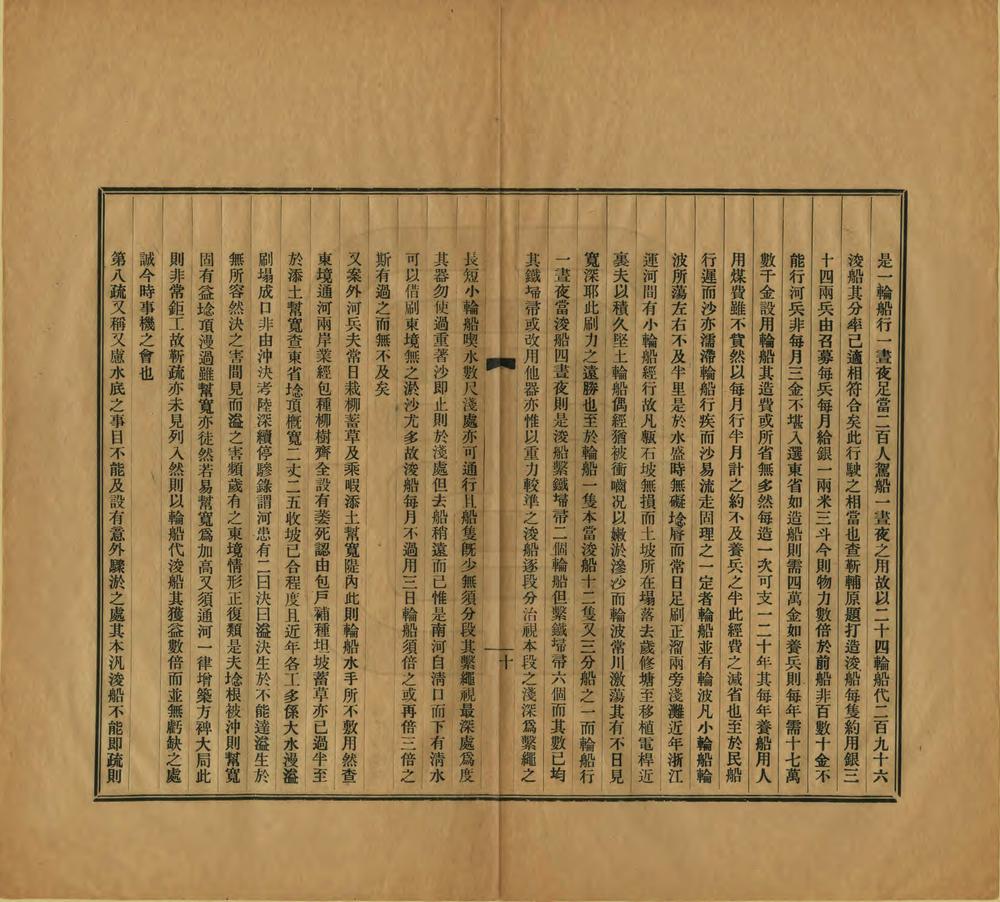 是一輪船行一晝夜足當二百人駕船一晝夜之用故以二十四輪船代二百九十六
浚船其分率已適相符合矣此行駛之相當也查靳輔原題打造浚船每隻約用銀三
十四兩兵由召募每兵每月給銀一兩米三斗今則物力數倍於前船非百數十金不
能行河兵非每月三金不堪入選東省如造船則需四萬金如養兵則每年需十七萬
數千金設用輪船其造費或所省無多然每造一次可支一二十年其每年養船用人
用煤費雖不貲然以每月行半月計之約不及養兵之半此經費之減省也至於民船
行遲而沙亦濡滯輪船行疾而沙易流走固理之一定者輪船並有輪波凡小輪船輪
波所蕩左右不及半里是於水盛時無礙埝脣而常日足刷正溜兩旁淺灘近年浙江
運河間有小輪船經行故凡甎石坡無損而土坡所在塌落去歲修塘至移植電桿近
裏夫以積久堅土輪船偶經猶被衝嚙况以嫩淤滲沙而輪波常川激蕩其有不日見
寬深耶此刷力之遠勝也至於輪船一隻本當浚船十二隻又三分船之一而輪船行
一晝夜當浚船四晝夜則是浚船繫鐵埽帚二個輪船但繫鐵埽帚六個而其數已均
其鐵埽帚或改用他器亦惟以重力較準之浚船逐段分治視本段之淺深爲繫繩之
十
長短小輪船喫水數尺淺處亦可通行且船隻旣少無須分段其繫繩視最深處爲度
其器勿使過重著沙即止則於淺處但去船稍遠而已惟是南河自淸口而下有淸水
可以借刷東境無之淤沙尤多故浚船每月不過用三日輪船須倍之或再倍三倍之
斯有過之而無不及矣
又案外河兵夫常日栽柳蓄草及乘暇添土幫寬隄內此則輪船水手所不敷用然查
東境通河兩岸業經包種柳樹齊全設有萎死認由包戸補種坦坡蓄草亦已過半至
於添土幫寬查東省埝頂槪寬二丈二五收坡已合程度且近年各工多係大水漫溢
刷塌成口非由沖決考陸深續停驂錄謂河患有二曰決曰溢決生於不能達溢生於
無所容然決之害間見而溢之害頻歲有之東境情形正復類是夫埝根被沖則幫寬
固有益埝頂漫過雖幫寬亦徒然若易幫寬爲加高又須通河一律增築方裨大局此
則非常鉅工故靳疏亦未見列入然則以輪船代浚船其獲益數倍而並無虧缺之處
誠今時事機之會也
第八疏又稱又慮水底之事目不能及設有意外驟淤之處其本汛浚船不能即疏則